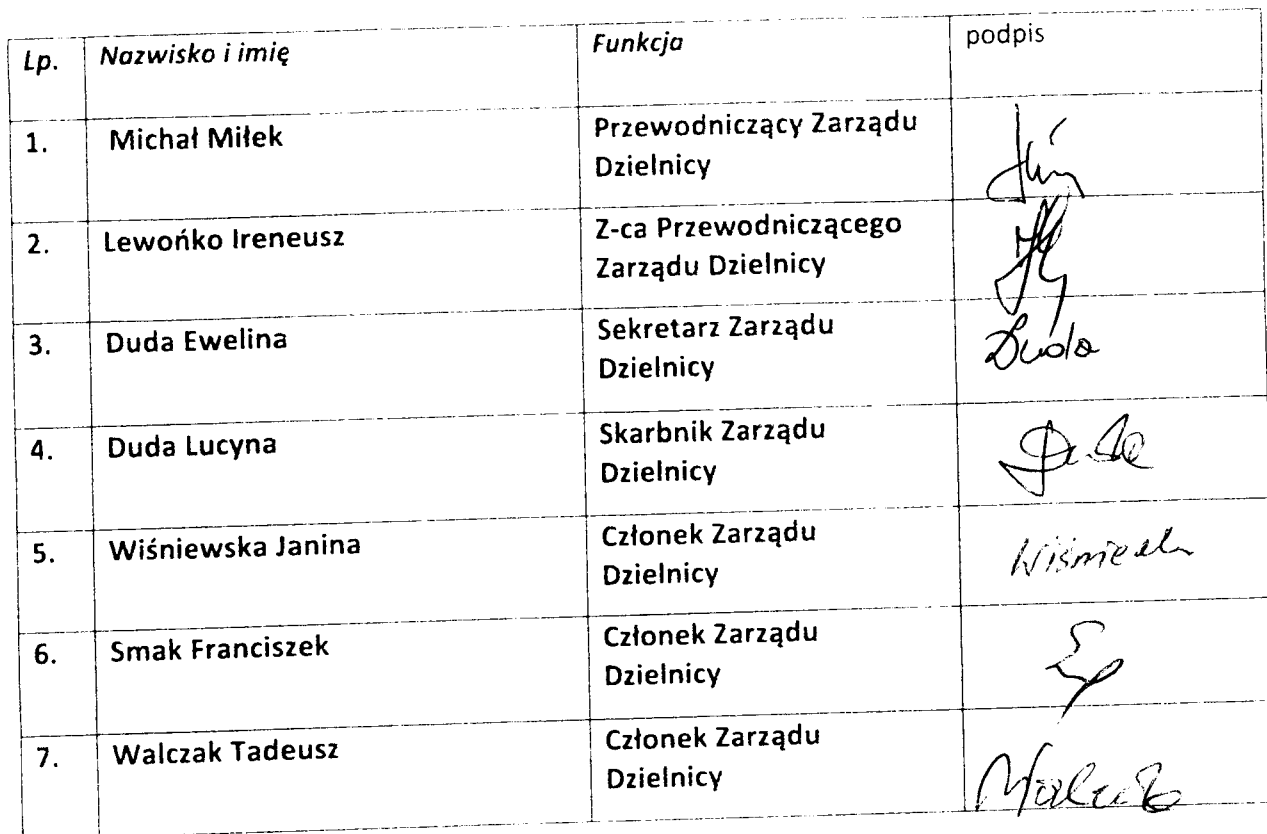 Lp. Nazwisko i imię Funkcja podpis
1. Michał Miłek Przewodniczący Zarządu
Dzielnicy
2. Lewońko Ireneusz Z-ca Przewodniczącego
Zarządu Dzielnicy
3. Duda Ewelina Sekretarz Zarządu Duda
Dzielnicy
4. Duda Lucyna Skarbnik Zarządu
Dzielnicy
5. Wiśniewska Janina Członek Zarządu
Dzielnicy
6. Smak Franciszek Członek Zarządu
Dzielnicy
7. Walczak Tadeusz Członek Zarządu
Dzielnicy